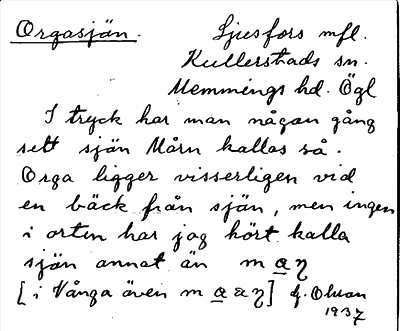 Orgasjän. Ljusfors mfl.
Kullerstads sn.
Memmings hd. Ögl
I tryck har man någon gång
sett sjän Mårn kallas så.
Orga ligger visserligen vid
en bäck från sjän, men ingen
i orten har jag hört kalla
sjän annat än
[i Vånga även
1937